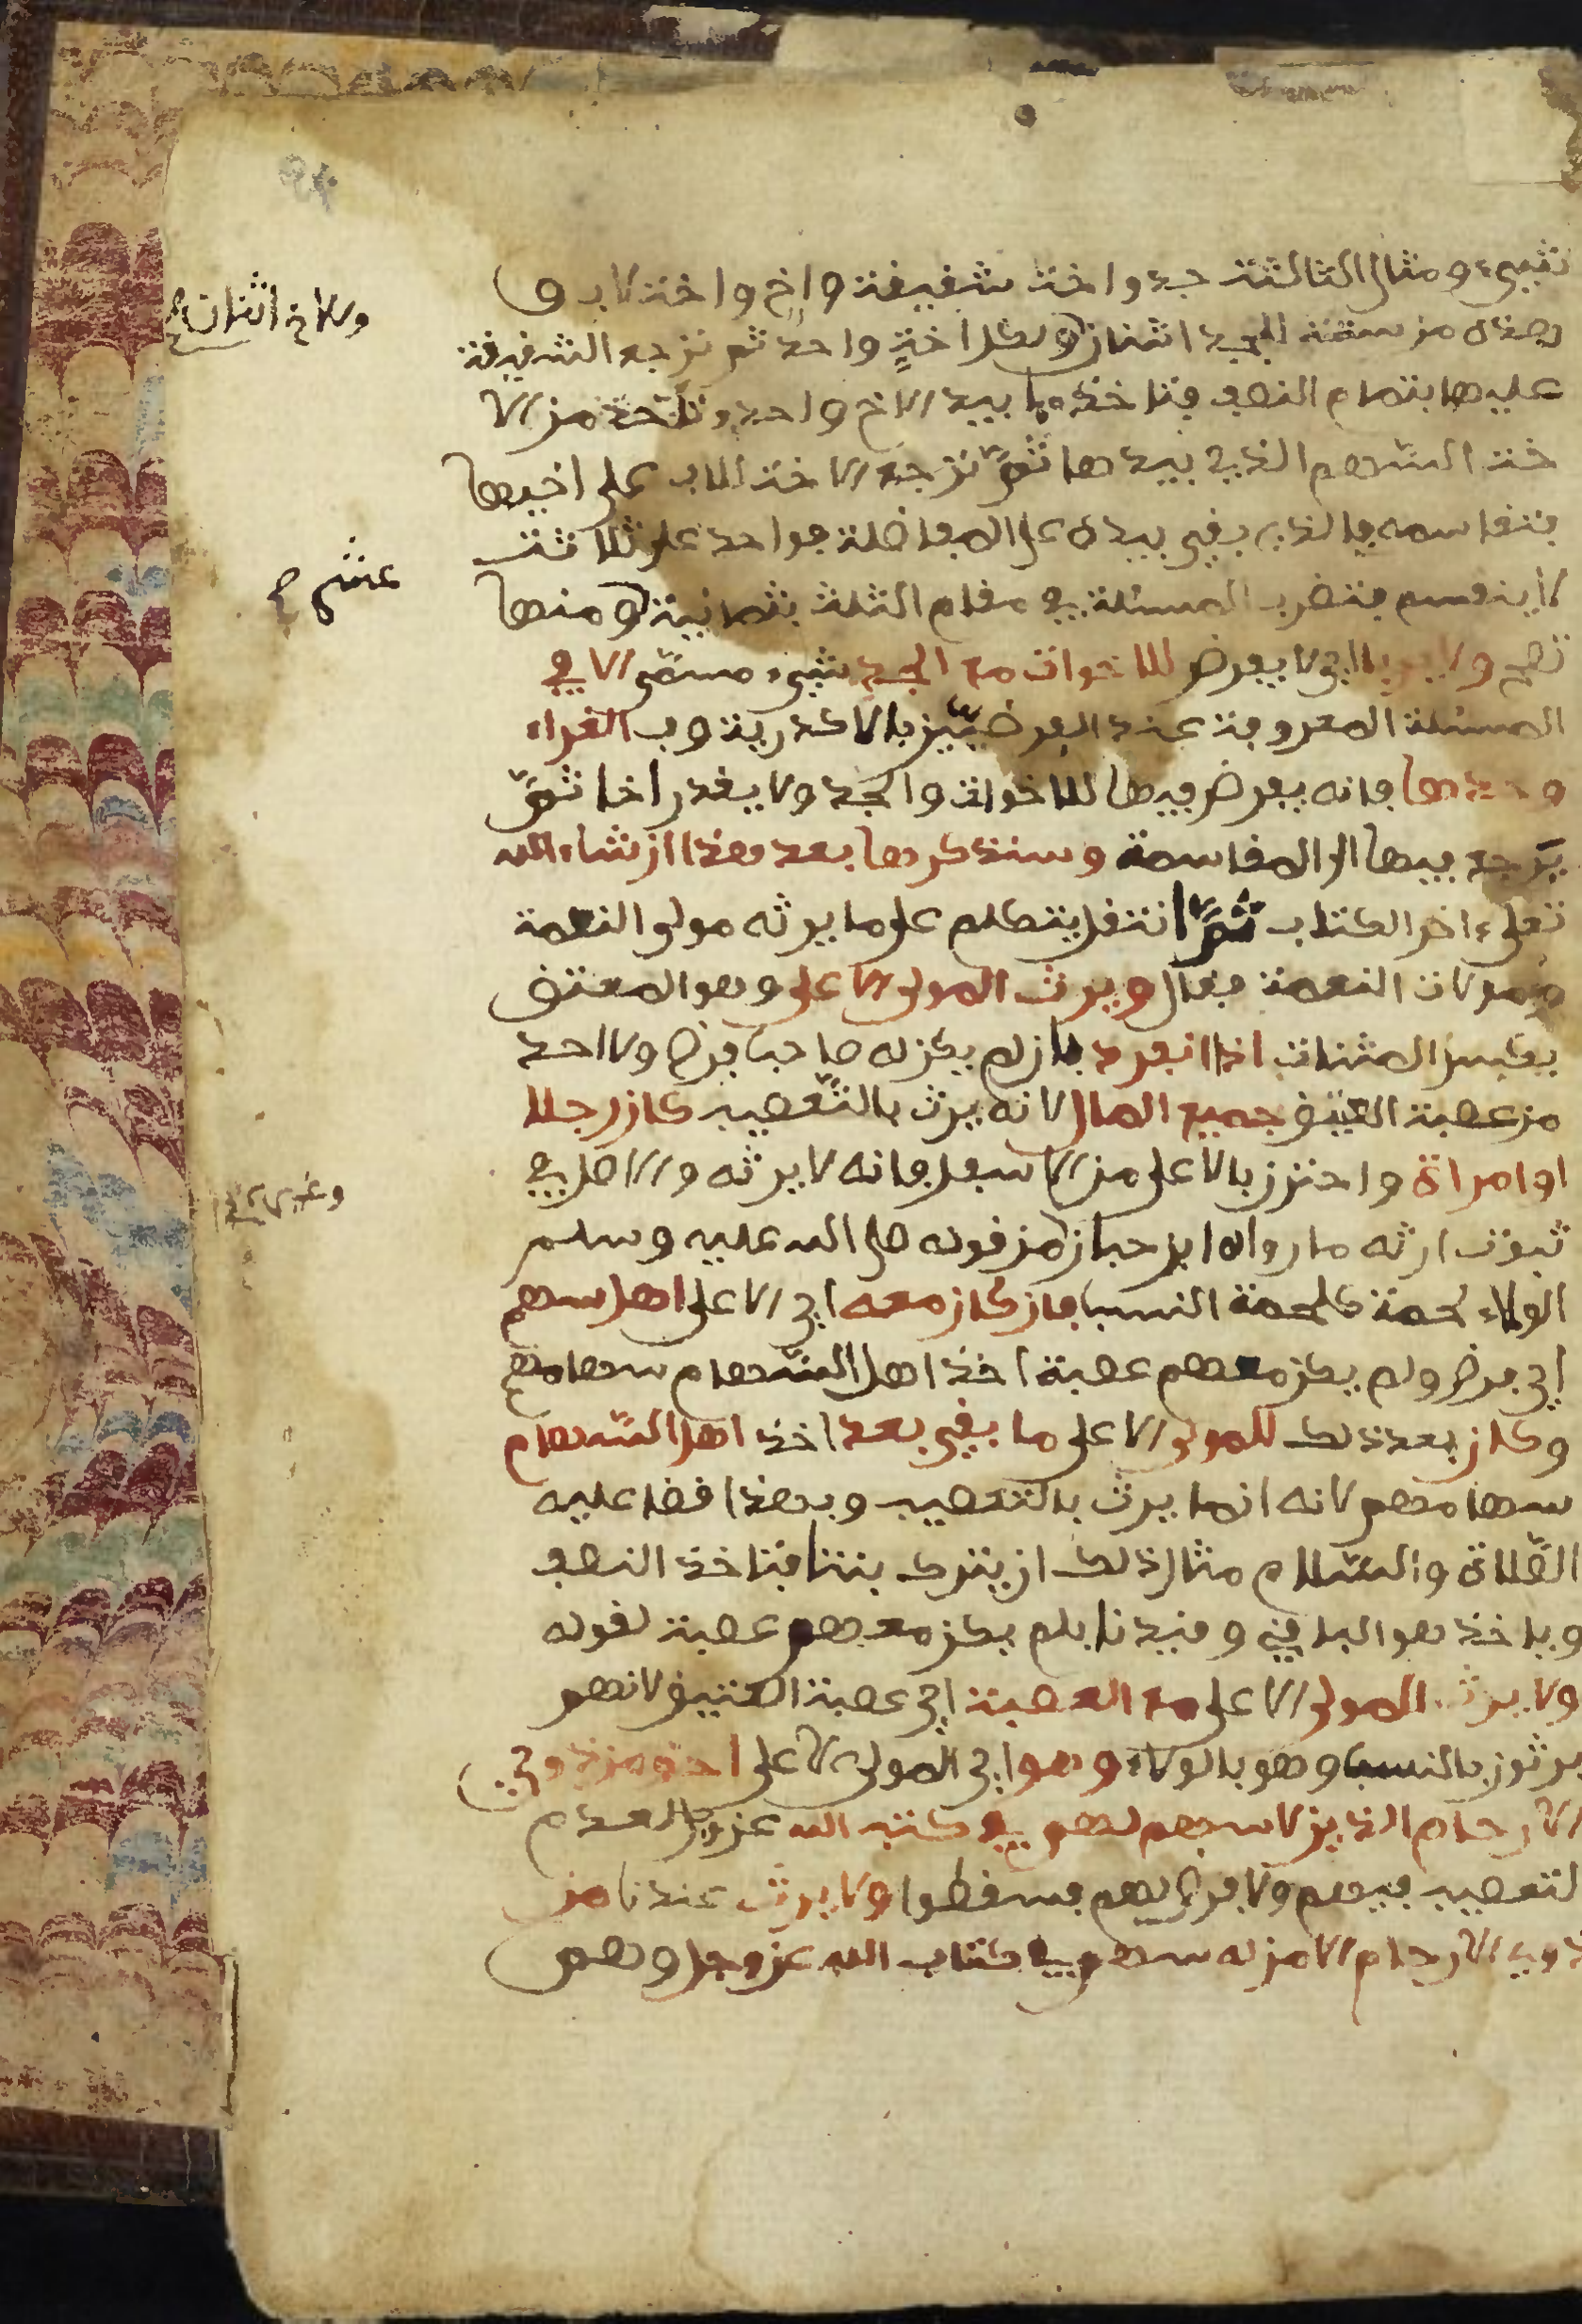 شيء ومثال الثالثة جد واخت شقيقة واخ واخت لاب و
هذه من ستة للجد اثنان ولكل اخت واحد ثم ترجع الشقيقة
وللاخ اثنان صح
عليهما بتمام النصف فتاخذ ما بيد الاخ واحد وتاخذ من الا
خت السهم الذي بيدها ثم ترجع الاخت للاب على اخيها
فتقاسمه فالذي بقي بيده على المفاضلة فواحد على ثلاثة
لا ينقسم فتضرب المسئلة في مقام الثلث بثمانية ومنها
عشر صح
تصح ولا يربا اي لا يفرض للاخوات مع الجد شيء مسمى الا في
المسئلة المعروفة عند الفرضيين بالاكدرية وب الغراء
وحدها فانه يفرض فيها للاخوات والجد ولا يقدر اخا ثم
يرجع فيها الى المقاسمة وسنذكرها بعد هذا ان شاء الله
تعلى ءاخر الكتاب ثم انتقل يتكلم على ما يرثه مولى النعمة
ومولات النعمة فقال ويرث المولى الاعلى وهو المعتق
بكسر المثنات اذا انفرد بان لم يكن له صاحب فرض ولا احد
من عصبة العتيق جميع المال لانه يرث بالتعصيب كان رجلا
او امراة واحترز بالاعلى من الاسفل فانه لا يرثه والاصل في
ثبوت ارثه ما رواه ابن حبان من قوله صلى الله عليه وسلم
الولاء لحمة كلحمة النسب فان كان معه اي الاعلى اهل سهم
اي فرض ولم يكن معهم عصبة اخذ اهل السهام سهامهم
وكان بعد ذلك للمولى الاعلى ما بقي بعد اخذ اهل السهام
سهامهم لانه انما يرث بالتعصيب وبهذا قضا عليه
الصلاة والسلام مثال ذلك ان يترك بنتا فتاخذ النصف
وياخذ هو الباقي وقيدنا بلم يكن معهم عصبة لقوله
ولا يرث المولى الاعلى مع العصبة اي عصبة العتيق لانهم
يرثون بالنسب وهو بالولاء وهو اي المولى الاعلى احق من ذوي
الارحام الذين لا سهم لهم في كتب الله عز وجل لعدم
لتعصيب فيهم ولا فرض لهم فسقطوا ولا يرث عندنا من
ذوي الارحام الا من له سهم في كتاب الله عز وجل وهم